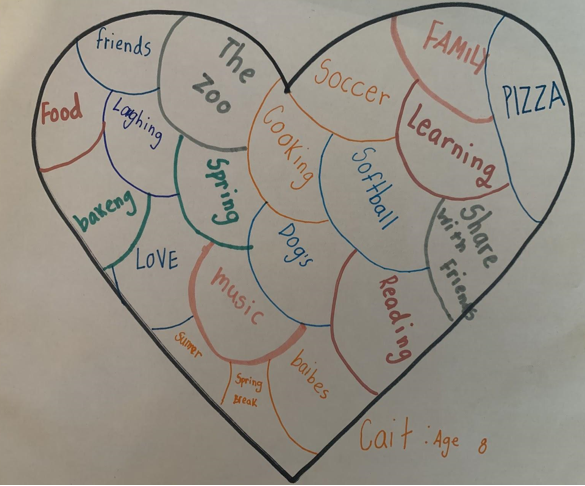 friends
The
Zoo
Soccer
FAMILY
PIZZA
Food
Laghing
Cooking
Learning
Softball
bakeng
Spring
Share
with
Friends
LOVE
Dog's
music
Reading
Sumer
Spring
Break
baibes
Cait : Age 8